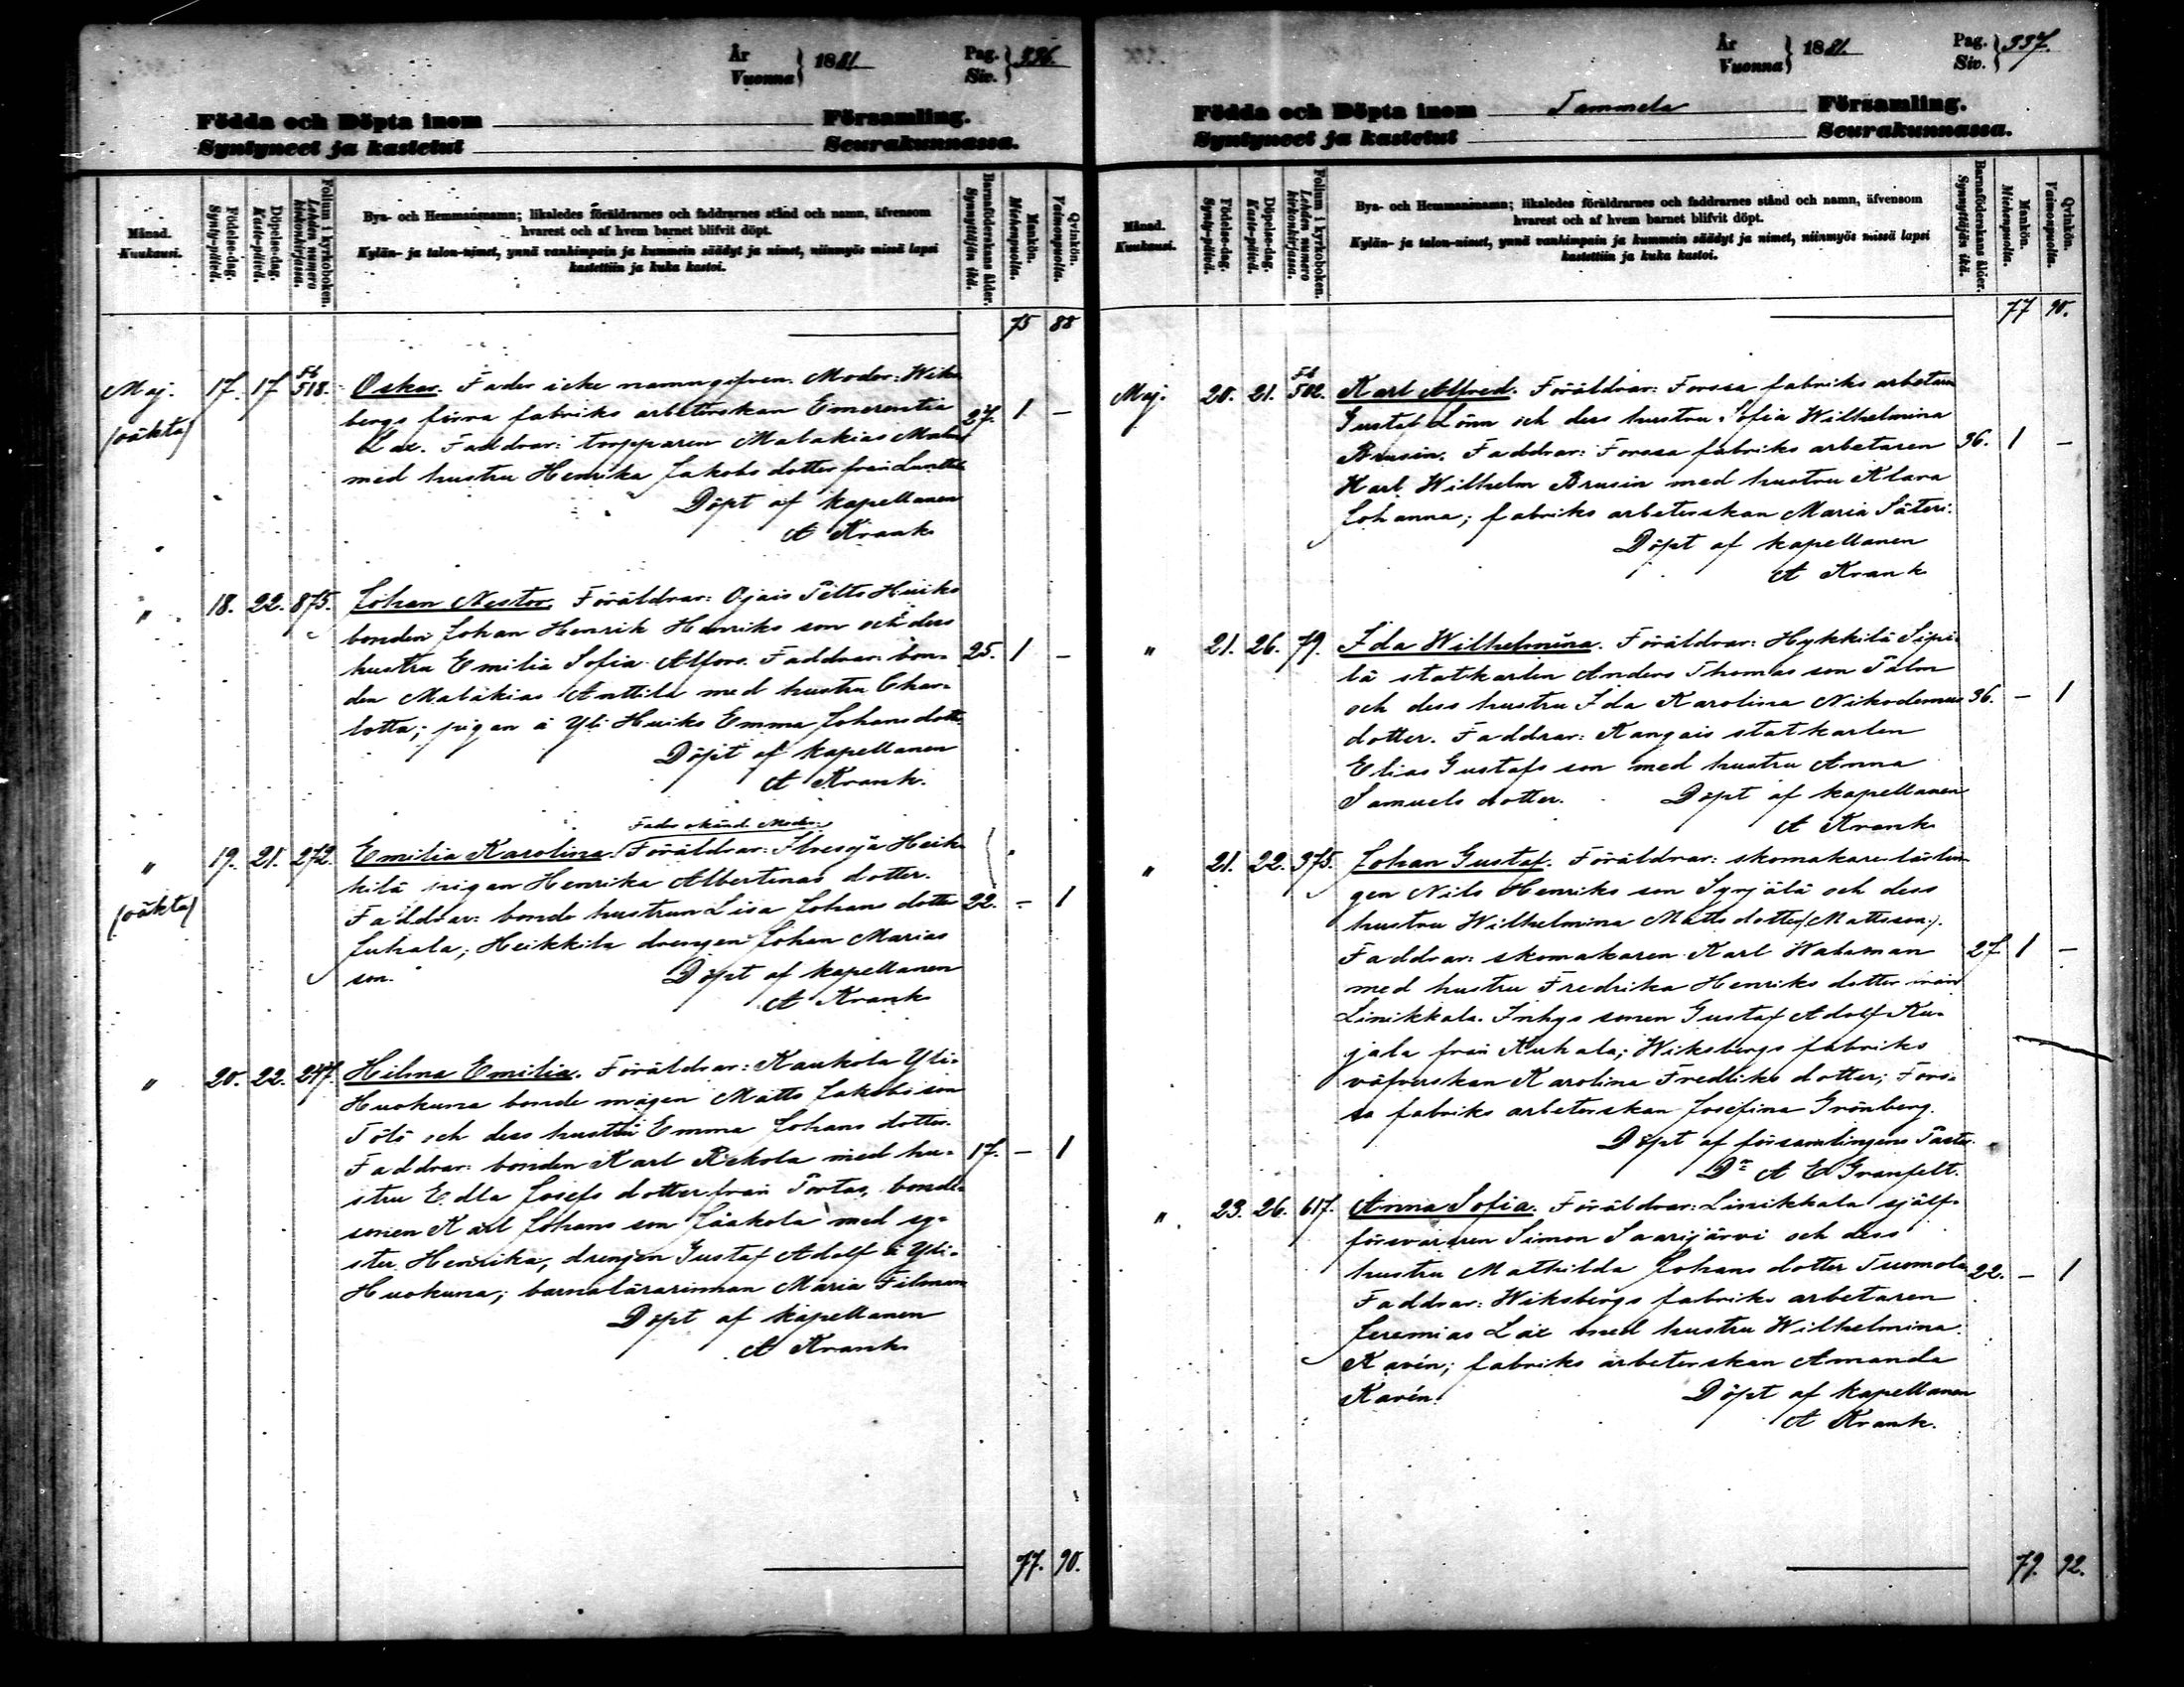 År
Vuonna } 1881. Pag. Siv. } 336.
Födda och Döpta inom Församling.
Syntyneet ja kastetut Seurakunnassa.
Månad. Kuukausi.
Födelse-dag. Synty-päivä.
Döpelse-dag. Kaste-päivä.
Folium i kyrkoboken. Lehden numero kirkonkirjassa.
Bya- och Hemmansnamn; likaledes föräldrarnes och faddrarnes stånd och namn, äfvensom
hvarest och af hvem barnet blifvit döpt.
Kylän- ja talon-nimet, ynnä vanhimpain ja kummein säädyt ja nimet, niinmyös missä lapsi
kastettiin ja kuka kastoi.
Barnaföderskans ålder. Synnyttäjän ikä.
Mankön. Miehenpuolta.
Qvinkön. Vaimonpuolta.
75 88
Maj. 17. 17 Fb 518. Oskar. Fader icke namngifven. Moder: Wiks-
(oäkta) bergs förra fabriks arbeterskan Emerentia 27. 1. –
Lax. Faddrar: torpparen Malakias Malm
med hustru Henrika Jakobs dotter från
Döpt af kapellanen
A Krank
" 18. 22. 875. Johan Nestor. Föräldrar: Ojais Pitto Huiko
bonden Johan Henrik Henriks son och dess
hustru Emilia Sofia Alfors. Faddrar: bon- 25. 1 –
den Malakias Anttila med hustru Char-
lotta; pigan å Yli Huiko Emma Johans dotter
Döpt af kapellanen
A Krank.
Fader okänd. Moder:
" 19. 21. 272. Emilia Karolina. Föräldrar: Ilvesoja Heik-
kilä pigan Henrika Albertinas dotter.
(oäkta) Faddrar: bonde hustrun Lisa Johans dotter 22. – 1
Juhala; Heikkilä drengen Johan Marias
son. Döpt af kapellanen
A Krank
" 20. 22. 247. Hilma Emilia. Föräldrar: Kaukola Yli-
Huokuna bonde mågen Matts Jakobs son
Tölö och dess hustru Emma Johans dotter.
Faddrar: bonden Karl Rekola med hu- 17. – 1
stru Edla Josefs dotter från Portas, bonde-
sonen Karl Johans son Jaakola med sy-
ster Henrika, drengen Gustaf Adolf å Yli-
Huokuna; barnalärarinnan Maria Filman
Döpt af kapellanen
A Krank
77. 90.
År
Vuonna } 1881. Pag. Siv. } 337.
Födda och Döpta inom Tammela Församling.
Syntyneet ja kastetut Seurakunnassa.
Månad. Kuukausi.
Födelse-dag. Synty-päivä.
Döpelse-dag. Kaste-päivä.
Folium i kyrkoboken. Lehden numero kirkonkirjassa.
Bya- och Hemmansnamn; likaledes föräldrarnes och faddrarnes stånd och namn, äfvensom
hvarest och af hvem barnet blifvit döpt.
Kylän- ja talon-nimet, ynnä vanhimpain ja kummein säädyt ja nimet, niinmyös missä lapsi
kastettiin ja kuka kastoi.
Barnaföderskans ålder. Synnyttäjän ikä.
Mankön. Miehenpuolta.
Qvinkön. Vaimonpuolta.
77 90.
Maj. 20. 21. Fb 502. Karl Alfred. Föräldrar: Forssa fabriks arbetaren
Gustaf Lönn och dess hustru Sofia Wilhelmina
Brusin. Faddrar: Forssa fabriks arbetaren 36. 1 –
Karl Wilhelm Brusin med hustru Klara
Johanna; fabriks arbeterskan Maria Säteri.
Döpt af kapellanen
A Krank
" 21. 26. 79. Ida Wilhelmina. Föräldrar: Hykkilä Sipi-
lä statkarlen Anders Thomas son Palm
och dess hustru Ida Karolina Nikodemus 36. – 1
dotter. Faddrar: Kangais statkarlen
Elias Gustafs son med hustru Anna
Samuels dotter. Döpt af kapellanen
A Krank
" 21. 22. 375. Johan Gustaf. Föräldrar: skomakare lärlin-
gen Nils Henriks son Syrjälä och dess
hustru Wilhelmina Matts dotter (Mattsson).
Faddrar: skomakaren Karl Wahlman 27 1 –
med hustru Fredrika Henriks dotter från
Linikkala. Inhys sonen Gustaf Adolf Ku-
jala från Kuhala; Wiksbergs fabriks
väfverskan Karolina Fredriks dotter; Fors-
sa fabriks arbeterskan Josefina Grönberg.
Döpt af församlingens Pastor
Dr A E Granfelt.
" 23. 26. 617. Anna Sofia. Föräldrar: Linikkala sjelf-
försvararen Simon Saarijärvi och dess
hustru Mathilda Johans dotter Tuomola 22. – 1
Faddrar: Wiksbergs fabriks arbetaren
Jeremias Lax med hustru Wilhelmina
Kavén; fabriks arbeterskan Amanda
Kavén. Döpt af kapellanen
A Krank.
79. 92.